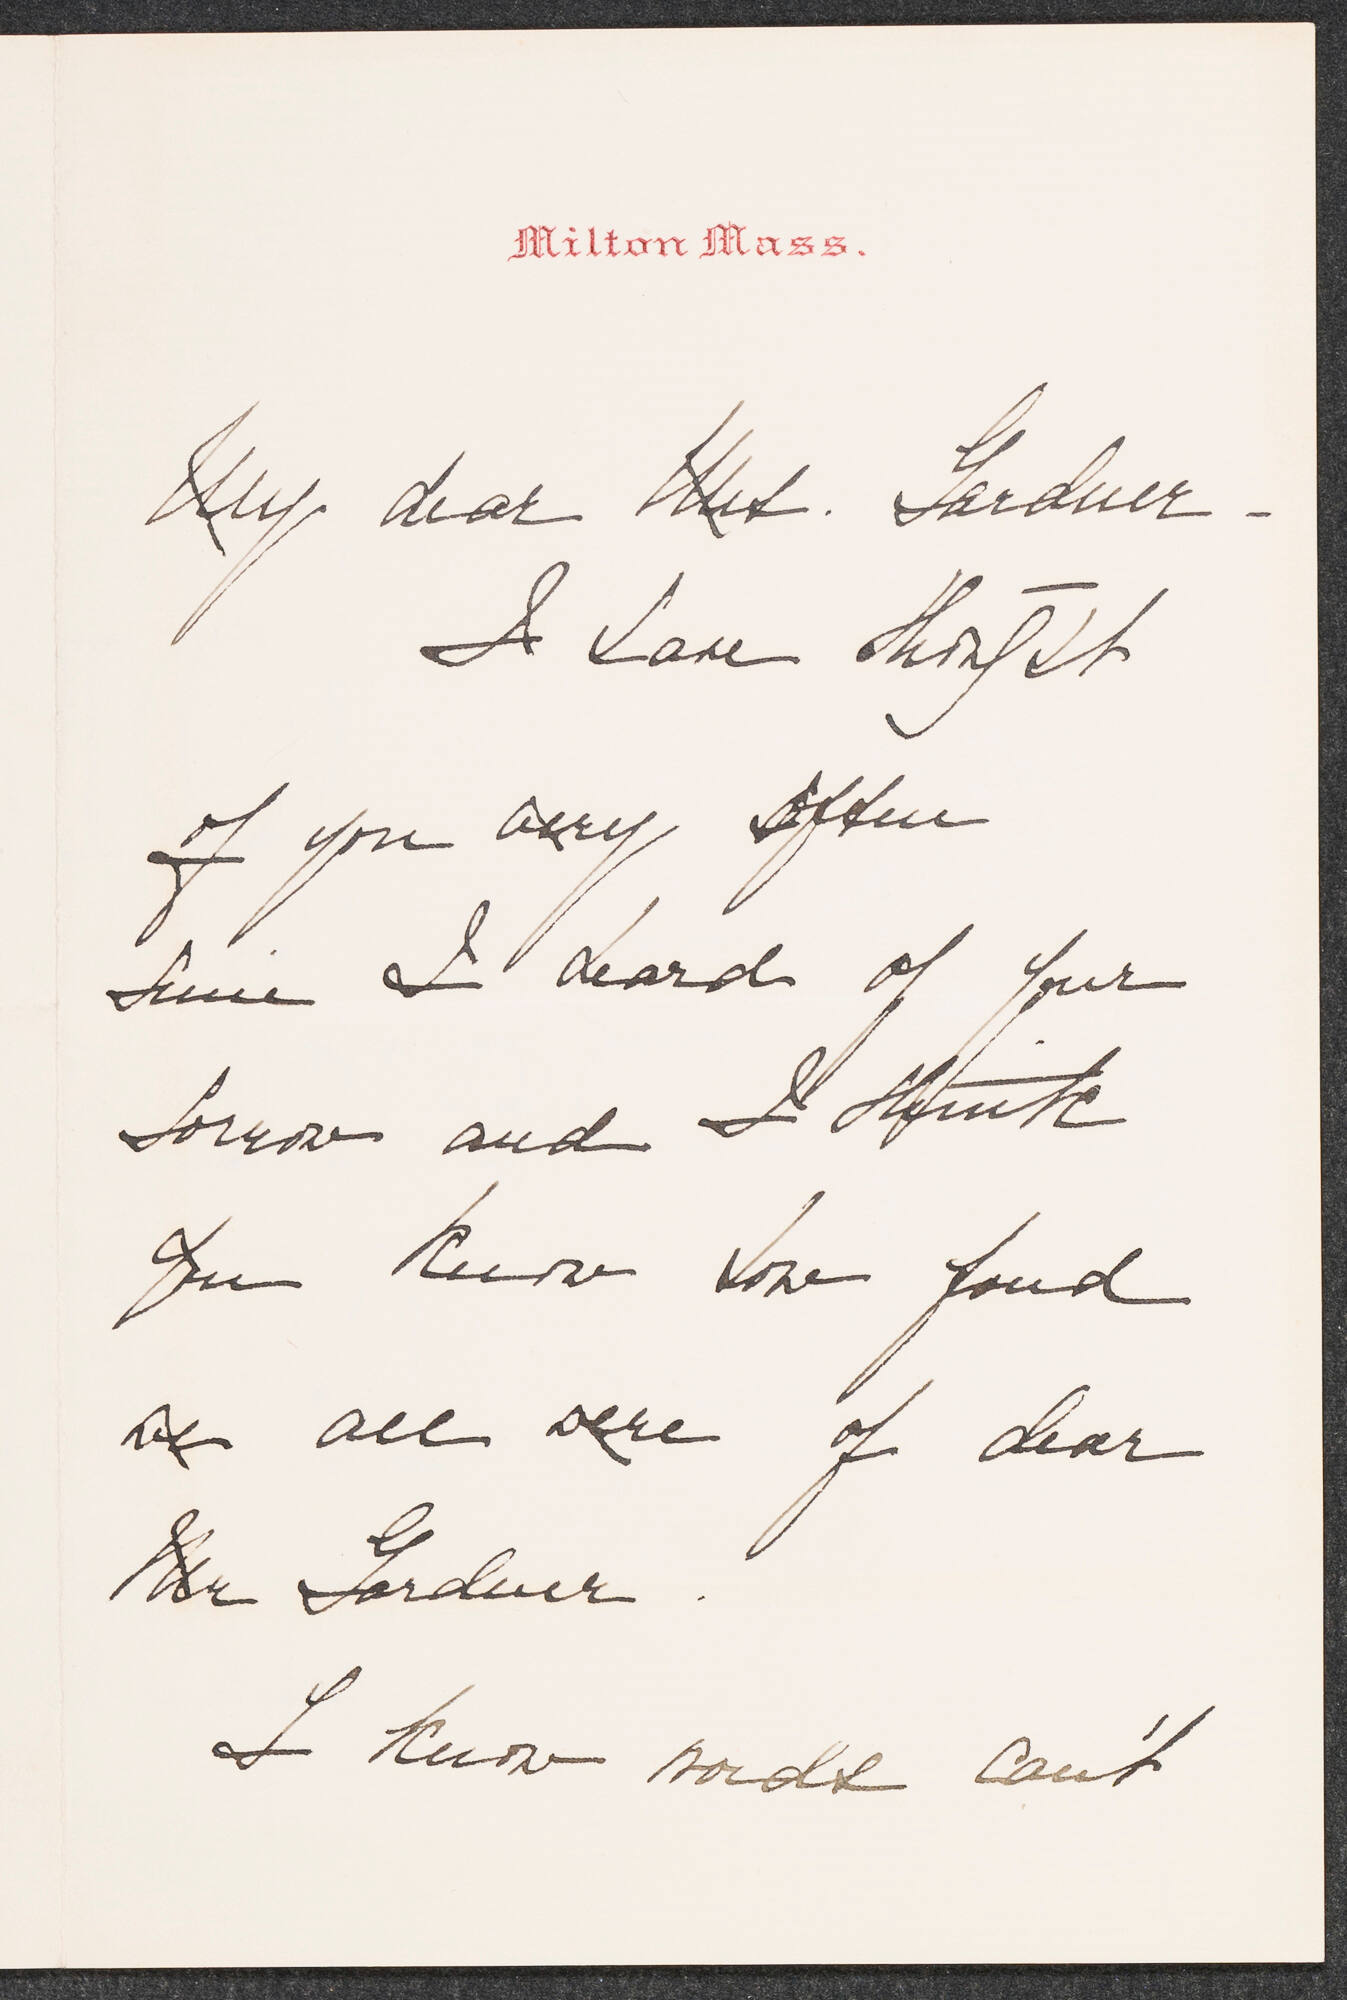 Milton Mass.
My dear Mrs. Gardner -
I have thought
of you very often
since I heard of your
sorrow and I think
you know how fond
we all were of dear
Mr Gardner.
I know words can't